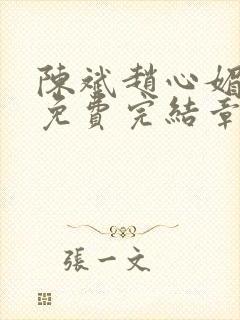 陳斌趙心媚
免費完結章
張一文